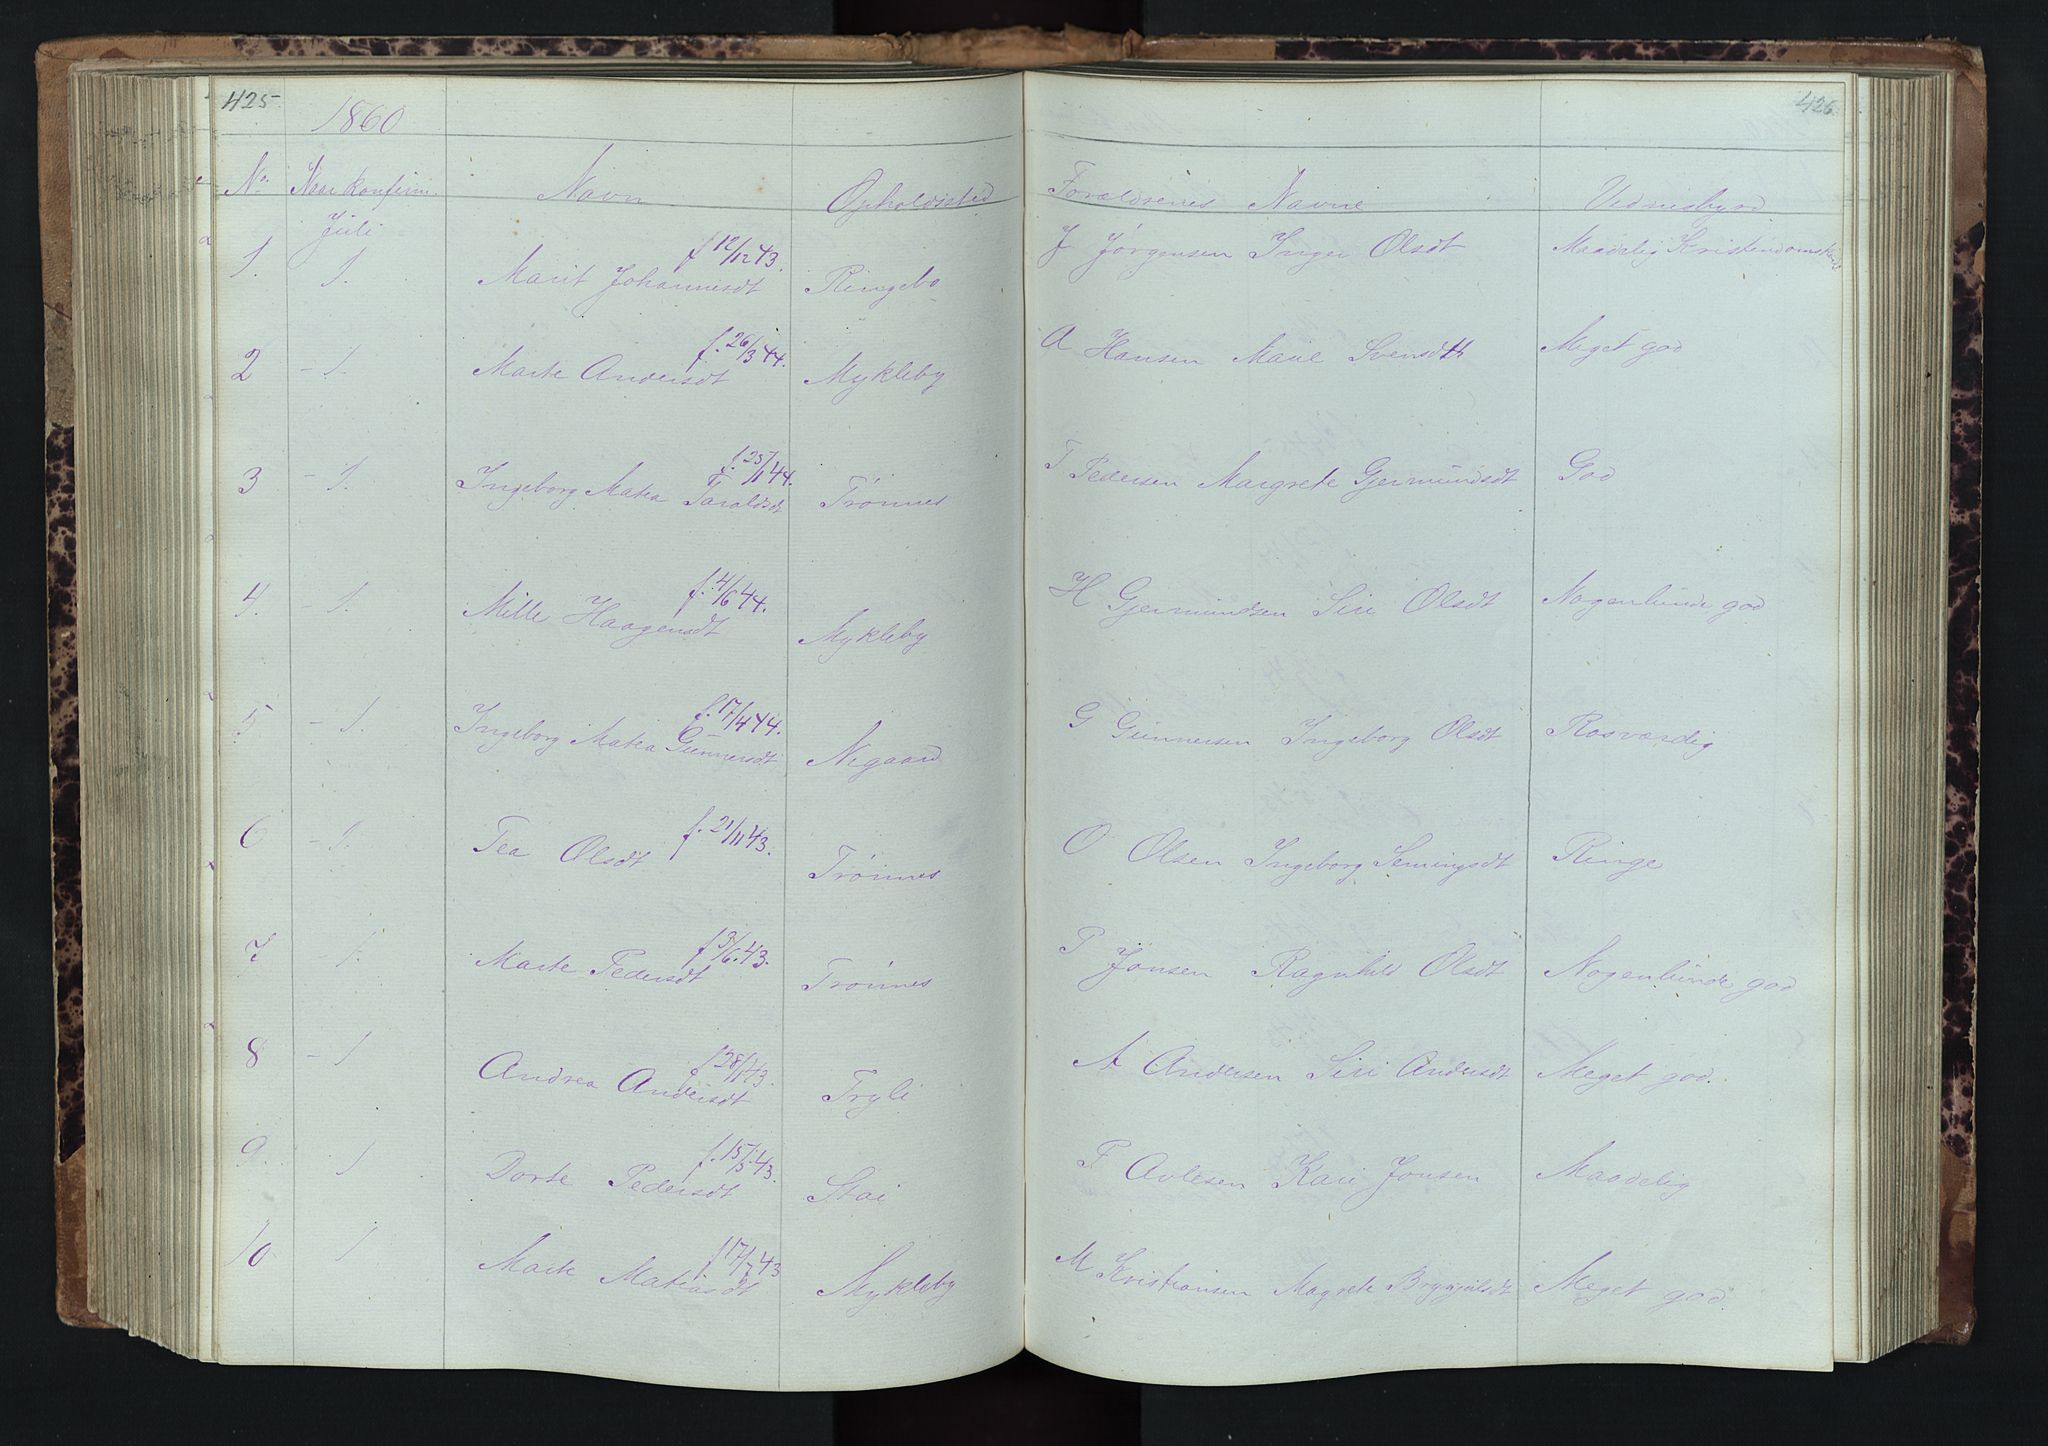 425
1860
No Naar konfirm. Navn Opholdssted
Juli
1. 1. Marit Johannesdt f 12/12 43. Ringebo
2 - 1. Marte Andersdt f. 26/3 44. Mykleby
3 - 1. Ingeborg Matea Taraldsdt f. 25/1 44. Trønnes
4. - 1. Mille Haagensdt f. 4/6 44. Mykleby
5 - 1. Ingeborg Matea Gunnersdt f. 17/4 44. Negaard
6 - 1. Tea Olsdt f. 21/11 43. Trønnes
7 - 1. Marte Pedersdt f 3/6 43. Trønnes
8 - 1 Andrea Andersdt f 28/1 43. Tryli
9. 1 Dorte Pedersdt f. 15/3 43. Stai
10 1 Marte Matiasdt f 17/7 43 Mykleby
426
Forældrenes Navne Vidnesbyrd
J Jørgensen Inger Olsdt Maadelig Kristendomskund
A Hansen Marie Svensdtt Meget god
T Pedersen Margrete Gjermundsdt God
H Gjermundsen Siri Olsdt Nogenlunde god
G Gunnersen Ingeborg Olsdt Rosværdig
O Olsen Ingeborg Semingsdt Ringe
P Jonsen Ragnhild Olsdt Nogenlunde god
A Andersen Siri Andersdt Meget god.
P Avlesen Kari Jonsen Maadelig
M Kristiansen Magrete Brynjulsdt Meget god.